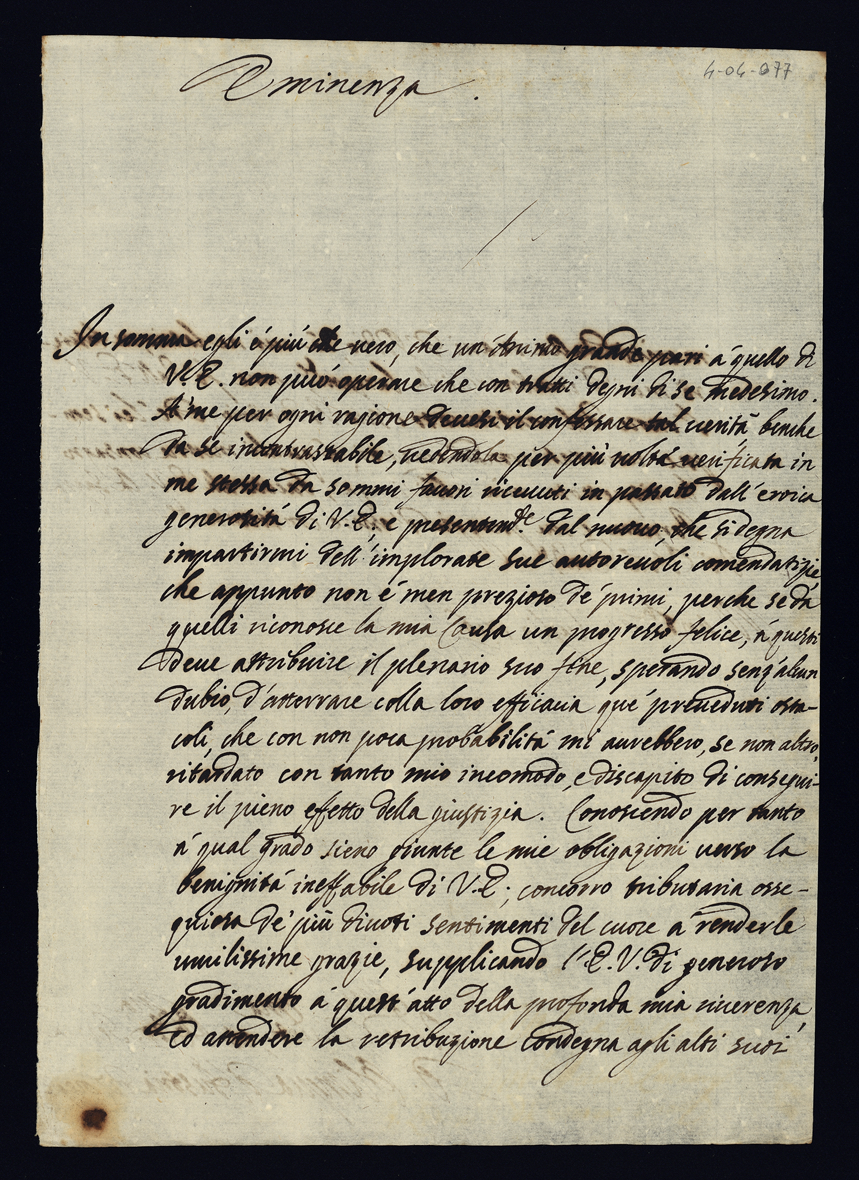 4-04-077
Eminenza.
In somma egli è più che vero, che un'Animo grande pari à quello di
V.E. non può operare che con tratti degni di se medesimo.
A' me per ogni ragione devesi il confessare tal verità benche
da se incontrastabile, vedendola per più volte verificata in
me stessa da sommi favori ricevuti in passato dall'eroica
generosità di V.E.; e presentem.te dal nuovo, che si degna
impartirmi dell'implorate sue autorevoli comendatizie
che appunto non è men prezioso de' primi, perche se da
quelli riconosce la mia Causa un progresso felice, à questi
deve attribuire il plenario suo fine, sperando senz'alcun
dubio, d'atterrare colla loro efficacia que' preveduti osta-
coli, che con non poca probabilità mi avrebbero, se non altro,
ritardato con tanto mio incomodo, e discapito di consegui-
re il pieno effetto della giustizia. Conoscendo per tanto
à qual grado sieno giunte le mie obligazioni verso la
benignità ineffabile di V.E.; concorro tributaria osse-
quiosa de' più divoti sentimenti del cuore a' renderle
umilissime grazie, supplicando l'E.V. di generoso
gradimento à quest'atto della profonda mia riverenza,
ed attendere la retribuzione condegna agli alti suoi